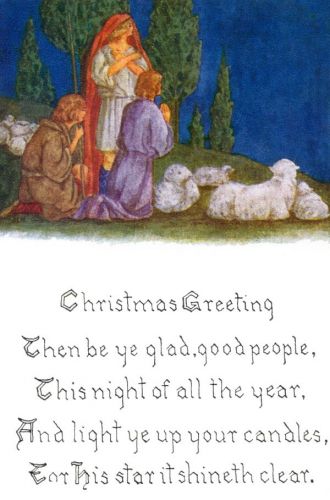 Christmas Greeting
Then be ye glad, good people,
This night of all the year,
And light ye up your candles,
For His star it shineth clear.